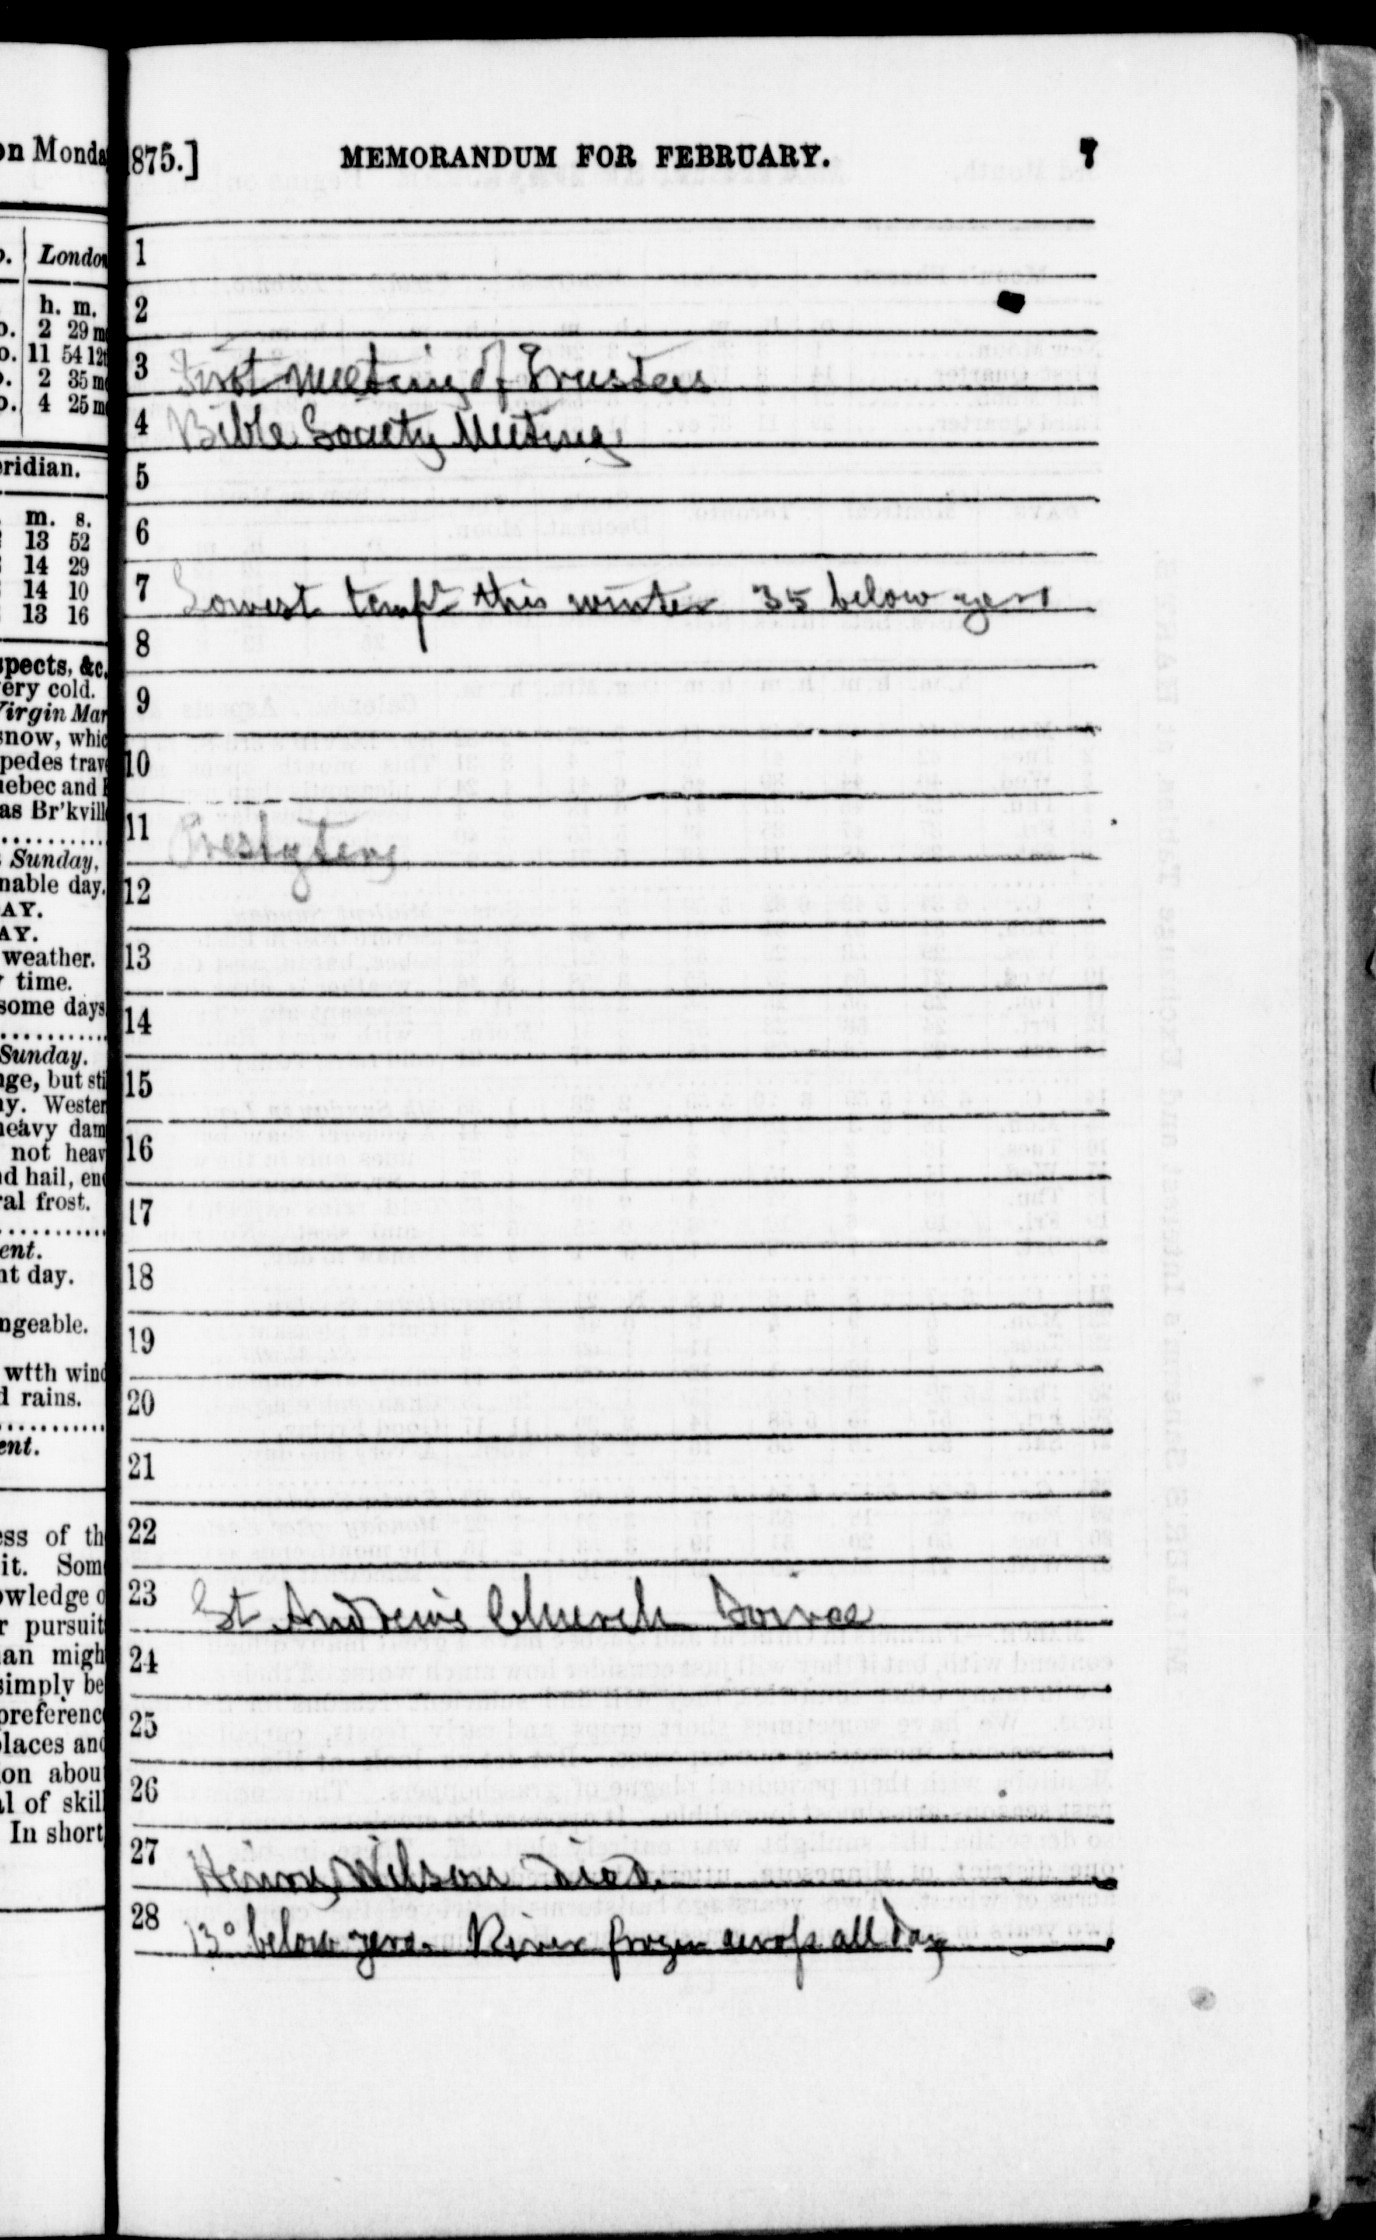 on Monda
o. London
h. m.
o. 2 29 m
o. 11 54 12t
o. 2 35 m
o. 4 25 m
eridian.
m. s.
13 52
14 29
14 10
13 16
spects, &c.
ery cold.
Virgin Mar
snow, whic
pedes trav
uebec and
as Br'kvill
Sunday,
nable day.
AY.
AY.
weather.
time.
some days
Sunday.
nge, but sti
y. Wester
heavy dam
not heav
d hail, en
ral frost.
ent.
nt day.
ngeable.
wtth wind
d rains.
ent.
ess of th
it. Som
owledge o
r pursuit
an migh
simply be
preferenc
places and
on abou
al of skill
In short
875.] MEMORANDUM FOR FEBRUARY. 7
1
2
3 First Meeting of Trustees
4 Bible Society Meeting
5
6
7 Lowest tempr this winter 35 below zero
8
9
10
11 Presbytery
12
13
14
15
16
17
18
19
20
21
22
23 St Andrew's Church Soiree
24
25
26
27 Henry Wilson died
28 13° below zero. River frozen across all day